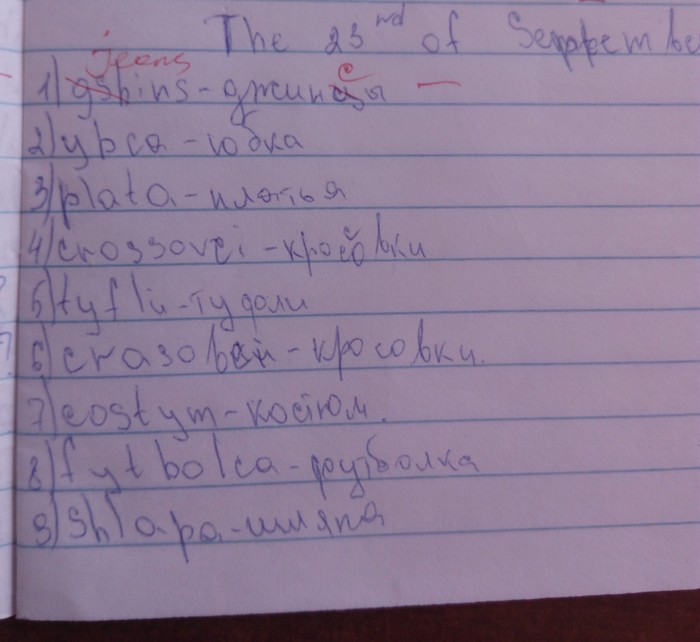 The 23rd of Septembe
jeans
1) gshins - джинцы
2) ybca - юбка
3) plata - платья
4) crossovci - кросовки
5) tyfli - туфли
6) crasovci - кросовки.
7) costym - костюм.
8) fytbolca - футболка
9) Shlapa - шляпа